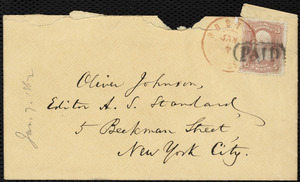 Oliver Johnson,
Editor A. S. Standard,
5 Beekman Street,
New York City.
PAID
JAN
Jan. 7. 1862